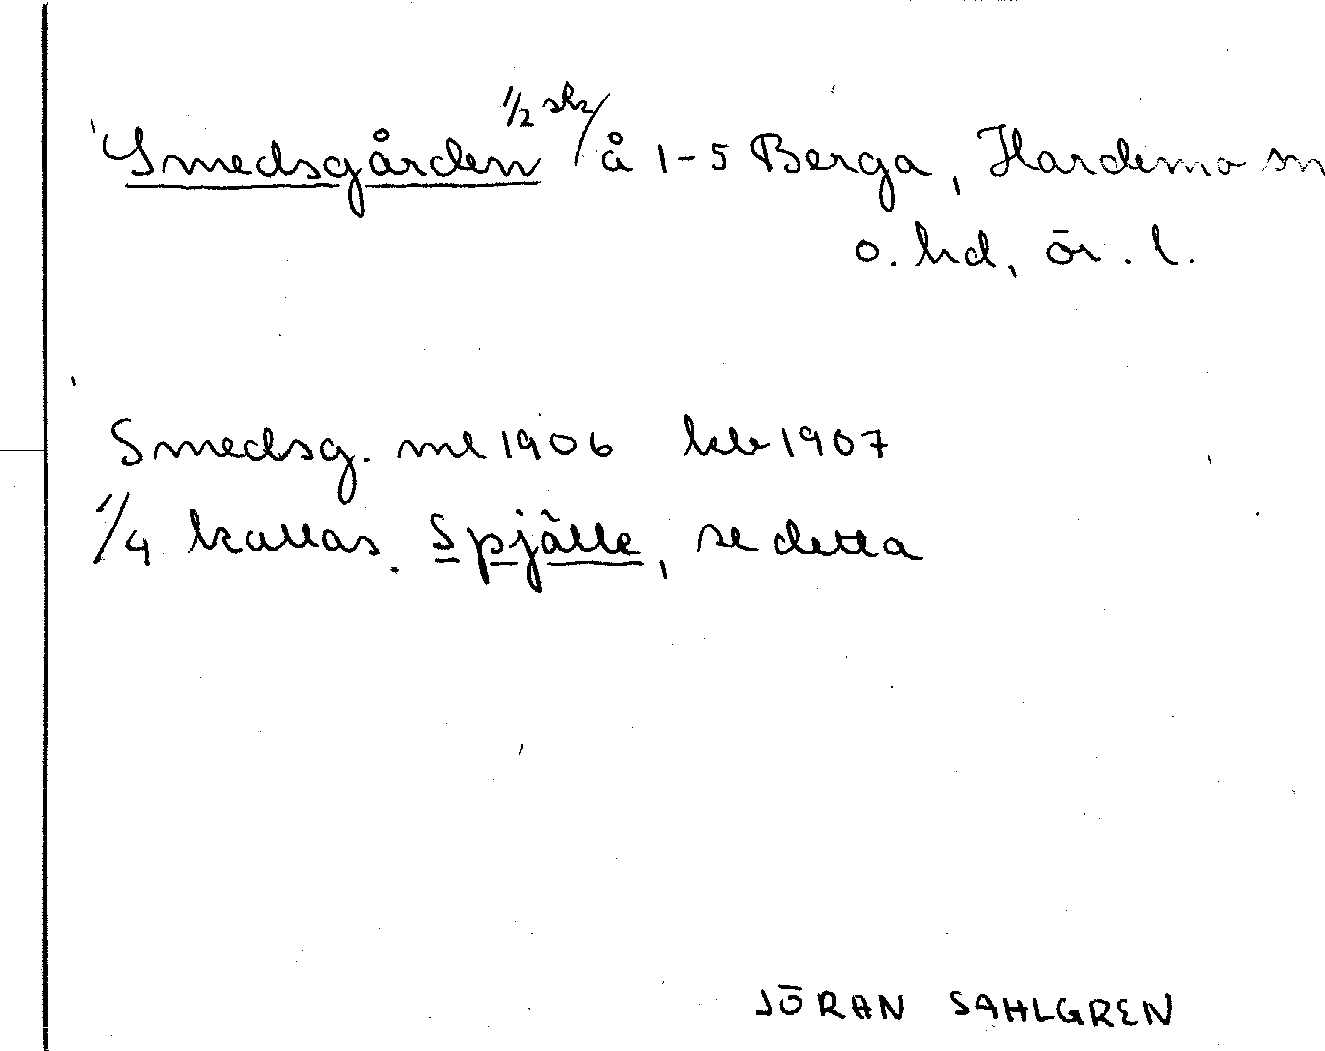 Smedsgården 1/2 sk/ å 1-5 Berga, Hardemo sn
o. hd, ör. l.
Smedsg. ml 1906 kb 1907
1/4 kallas. Spjälle, se detta
JÖRAN SAHLGREN